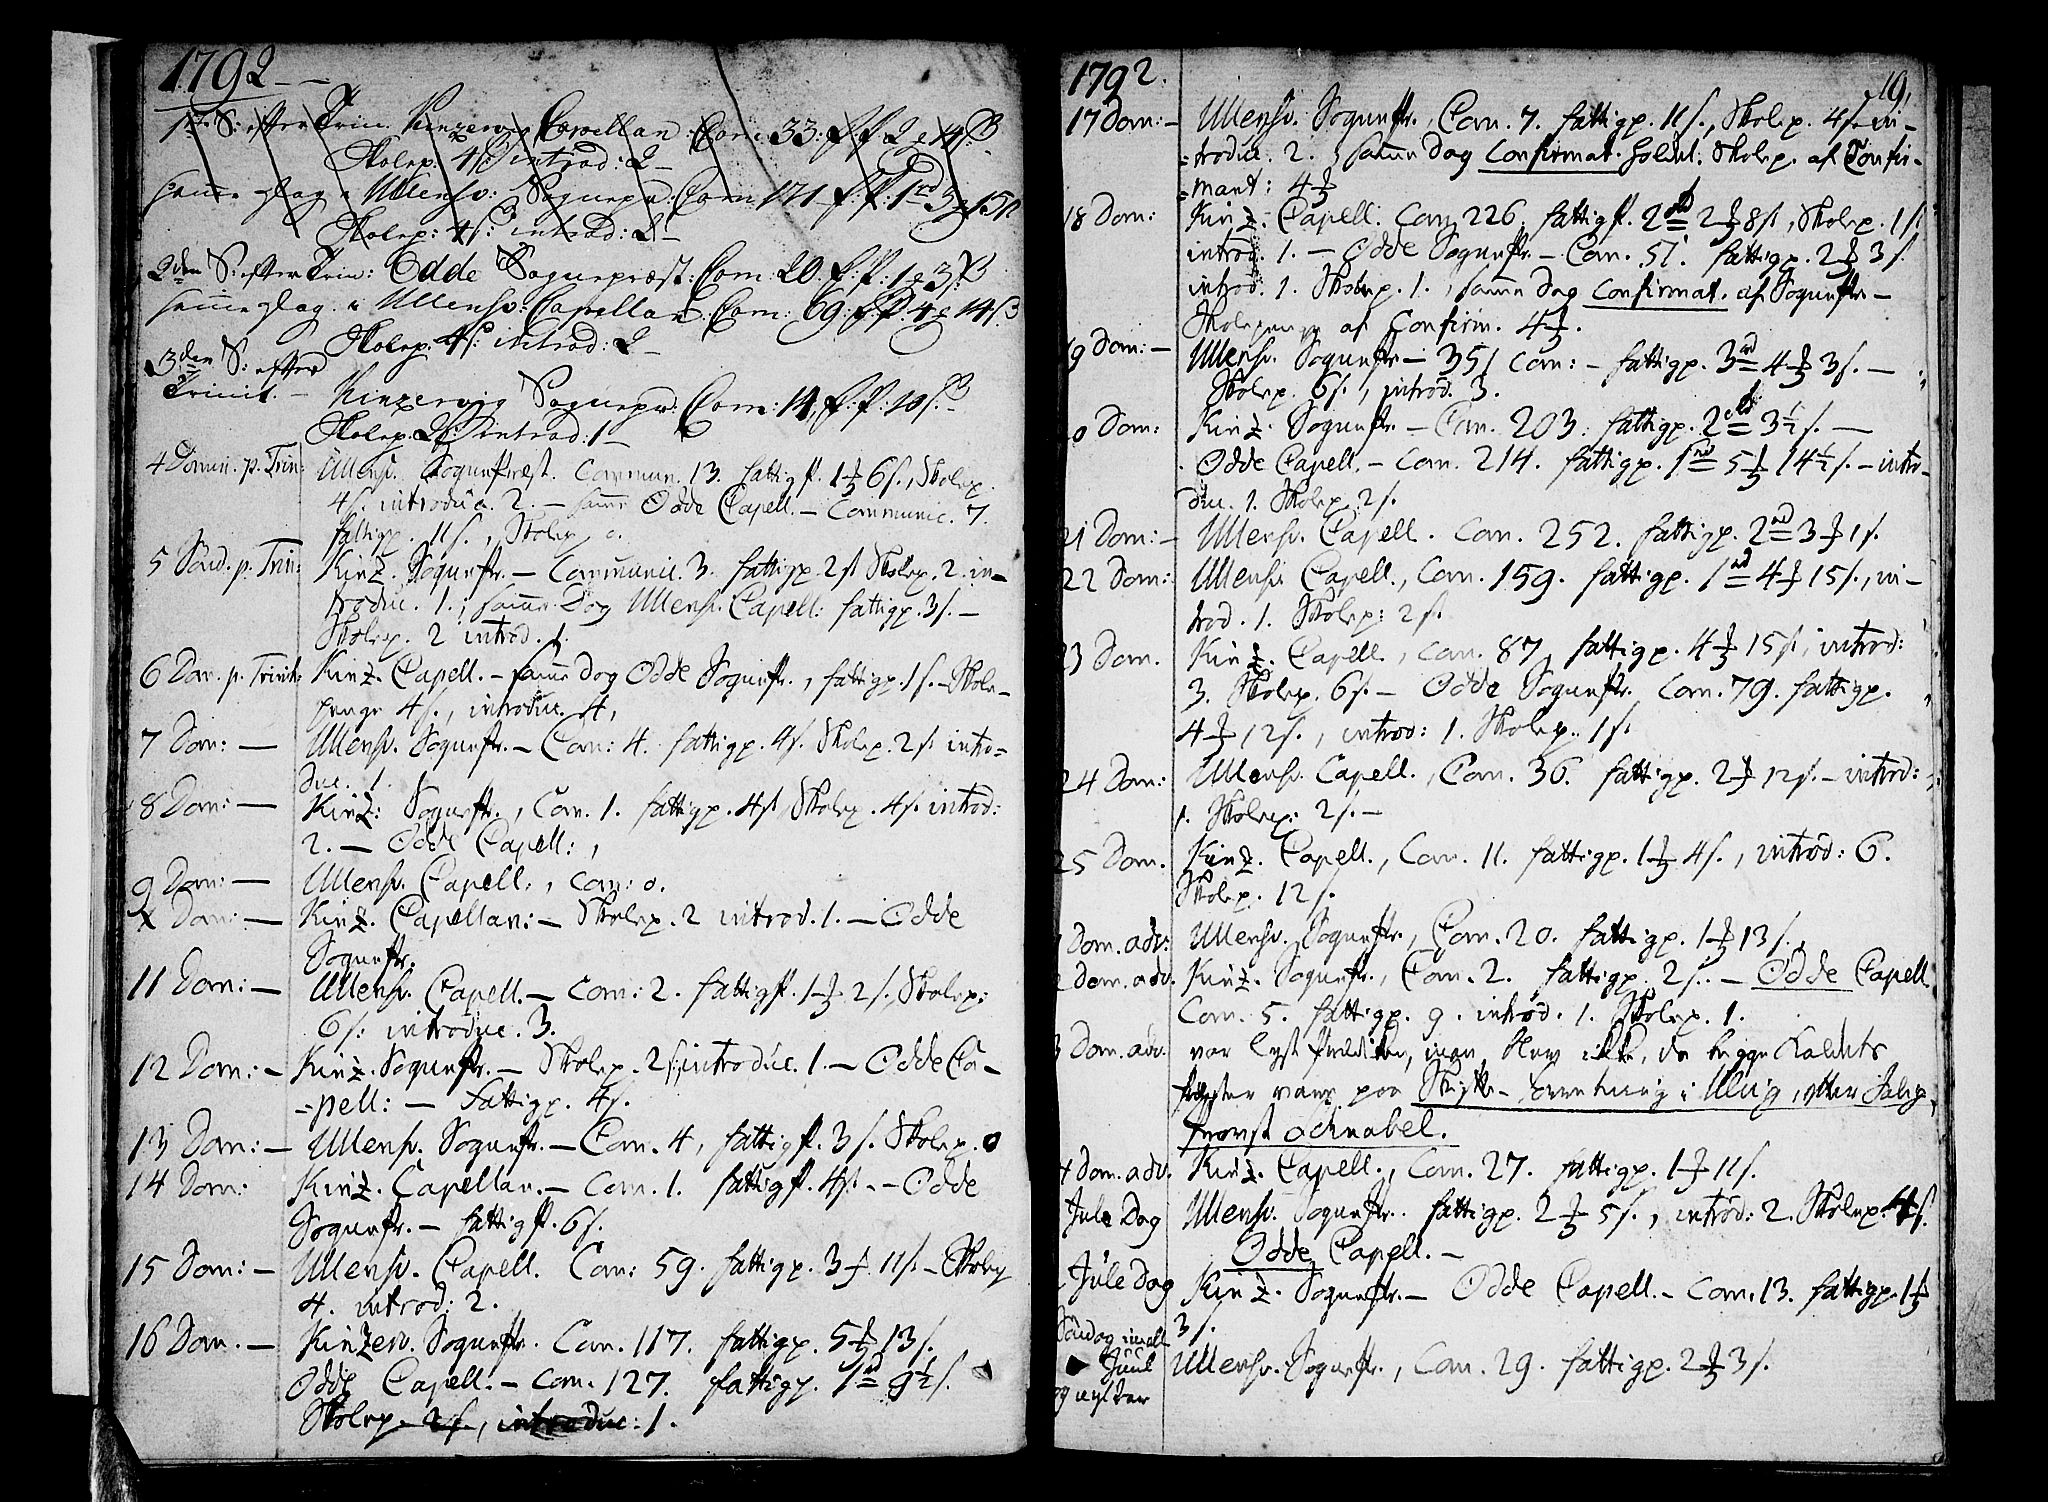 1792
1ste S: efter Trin. Kinzervig Capellan: Com: 33: f: P. 2 ʒ 14 ß
Skolep: 4 ß introd: 2
samme Dag i Ullensv: Sognepr: Com: 171 f: P: 1 rd 3 ʒ 15 ß
Skolep: 4 ß: introd: 2
2den S: efter Trin: Odde Sognepræst: Com: 20. f: P: 1 ʒ 3 ß
samme Dag i Ullensv: Capellan: Com: 69: f: P 4 ʒ 14 ß
Skolep: 4 ß: introd: 2
3den S: efter
Trinit. - Kinzervig Sognepr: Com: 14, f: P: 10 ß
Skolep. 2 ß introd: 1
4 Domin. p. Trin: Ullensv. Sognepræst. Commun. 13. fattigp. 1 ʒ 6 s., Skolep.
4 s. introduc. 2. - samme Odde Capell. - Communic. 7.
fattigp. 11 s., Skolep. 0.
5 Sønd. p. Trin: Kinz. Sognepr. - Communic. 3. fattigp. 2 s. Skolep. 2. in-
troduc. 1., samme Dag Ullensv. Capell: fattigp. 3 s. -
Skolep. 2 introd. 1.
6 Dom. p. Trinit: Kinz. Capell. - samme dag Odde Sognepr., fattigp. 1 s. - Skole-
penge 4 s., introduc. 4,
7 Dom: - Ullensv. Sognepr. - Com: 4. fattigp. 4 s. Skolep. 2 s. intro-
duc. 1.
8 Dom: - Kinz: Sognepr., Com. 1. fattigp. 4 s. Skolep. 4 s. introd:
2. - Odde Capell:,
9 Dom: - Ullensv. Capell:, Com: 0.
X Dom: - Kinz. Capellan: - Skolep. 2 introd. 1. - Odde
Sognepr.
11 Dom: - Ullensv. Capell. - Com: 2. fattigp. 1 ʒ 2 s. Skolep:
6 s: introduc. 3.
12 Dom: - Kinz. Sognepr. - Skolep. 2 s. introduc. 1. - Odde Ca-
=pell: - fattigp. 4 s.
13 Dom: - Ullensv. Sognepr. - Com. 4, fattigp. 3 s. Skolep. 0
14 Dom: Kinz. Capellan. - Com. 1. fattigp. 4 s. - Odde
Sognepr. - fattigp. 6 s.
15 Dom: - Ullensv. Capell. Com: 59. fattigp. 3 ʒ 11 s. - Skolep
4. introd: 2.
16 Dom. - Kinzerv. Sognepr. Com. 117. fattigp. 5 ʒ 13 s.
Odde Capell. - Com. 127. fattigp. 1 rd 9 1/2 s.
Skolep. 2 s., introduc: 1.
1792. 19.
17 Dom: - Ullensv. Sognepr., Com. 7. fattigp. 11 s., Skolep. 4 s. in-
=troduc. 2., samme Dag Confirmat. holdt. Skolep. af Confir-
=mant: 4 ʒ
18 Dom: Kinz. Capell. Com. 226. fattigp. 2 rd 2 ʒ 8 s., Skolep. 1 s.
introd. 1. - Odde Sognepr. - Com. 57. fattigp. 2 ʒ 3 s.
introd. 1. Skolep. 1., samme Dag Confirmat. af Sognepr. -
Skolepenge af Confirm. 4 ʒ.
19 Dom: - Ullensv. Sognepr. - 351 Com: - fattigp. 3 rd 4 ʒ 3 s. -
Skolep. 6 s., introd. 3.
20 Dom: Kinz. Sognepr. - Com. 203. fattigp. 2 rd 3 1/2 s. -
Odde Capell. - Com. 214. fattigp. 1 rd 5 ʒ 14 1/2 s. - intro-
duc. 1. Skolep. 2 s.
21 Dom: - Ullensv. Capell. Com. 252. fattigp. 2 rd 3 ʒ 1 s.
22 Dom: Ullensv. Capell., Com. 159. fattigp. 1 rd 4 ʒ 15 s., in-
trod. 1. Skolep: 2 s.
23 Dom. Kinz. Capell., Com. 87. fattigp. 4 ʒ 15 s., introd:
3. Skolep. 6 s. - Odde Sognepr. Com. 79. fattigp.
4 ʒ 12 s., introd: 1. Skolep. 1 s.
24 Dom: Ullensv. Capell., Com. 36. fattigp. 2 ʒ 12 s. - introd:
1. Skolep: 2 s. -
25 Dom. Kinz. Capell., Com. 11. fattigp. 1 ʒ 4 s., introd: 6.
Skolep. 12 s.
1 Dom. adv: Ullensv. Sognepr., Com. 20. fattigp. 1 ʒ 13 s.
2 Dom. adv. Kinz. Sognepr., Com. 2. fattigp. 2 s. - Odde Capell
Com. 5. fattigp. 9. introd. 1. Skolep. 1.
3 Dom. adv. var lyst Prædiken, men blev ikke, da begge Kaldets
Præster vare paa Skifte-Forretning i Ulvig, efter Salig
Provst Schnabel.
4 Dom. adv. Kinz. Capell., Com. 27. fattigp. 1 ʒ 11 s.
Jule Dag Ullensv. Sognepr. fattigp. 2 ʒ 5 s., introd: 2. Skolep: 4 s.
Odde Capell. -
2 Jule Dag Kinz. Sognepr. - Odde Capell. - Com. 13. fattigp. 1 ʒ
3 s.
Søndag imell
Juul
og nytaar Ullensv. Sognepr., Com. 29. fattigp. 2 ʒ 3 s.